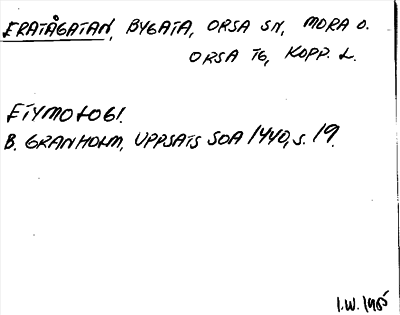 ERATÅGATAN, BYGATA, ORSA SN, MORA O.
ORSA TG, KOPP. L.
ETYMOLOGI.
B. GRANHOLM, UPPSATS SOA 1440, S. 19.
I.W. 1985